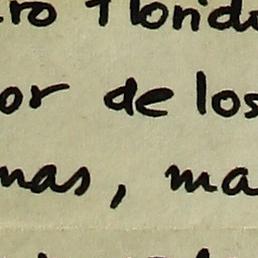 ro florido
or de los
mas, ma